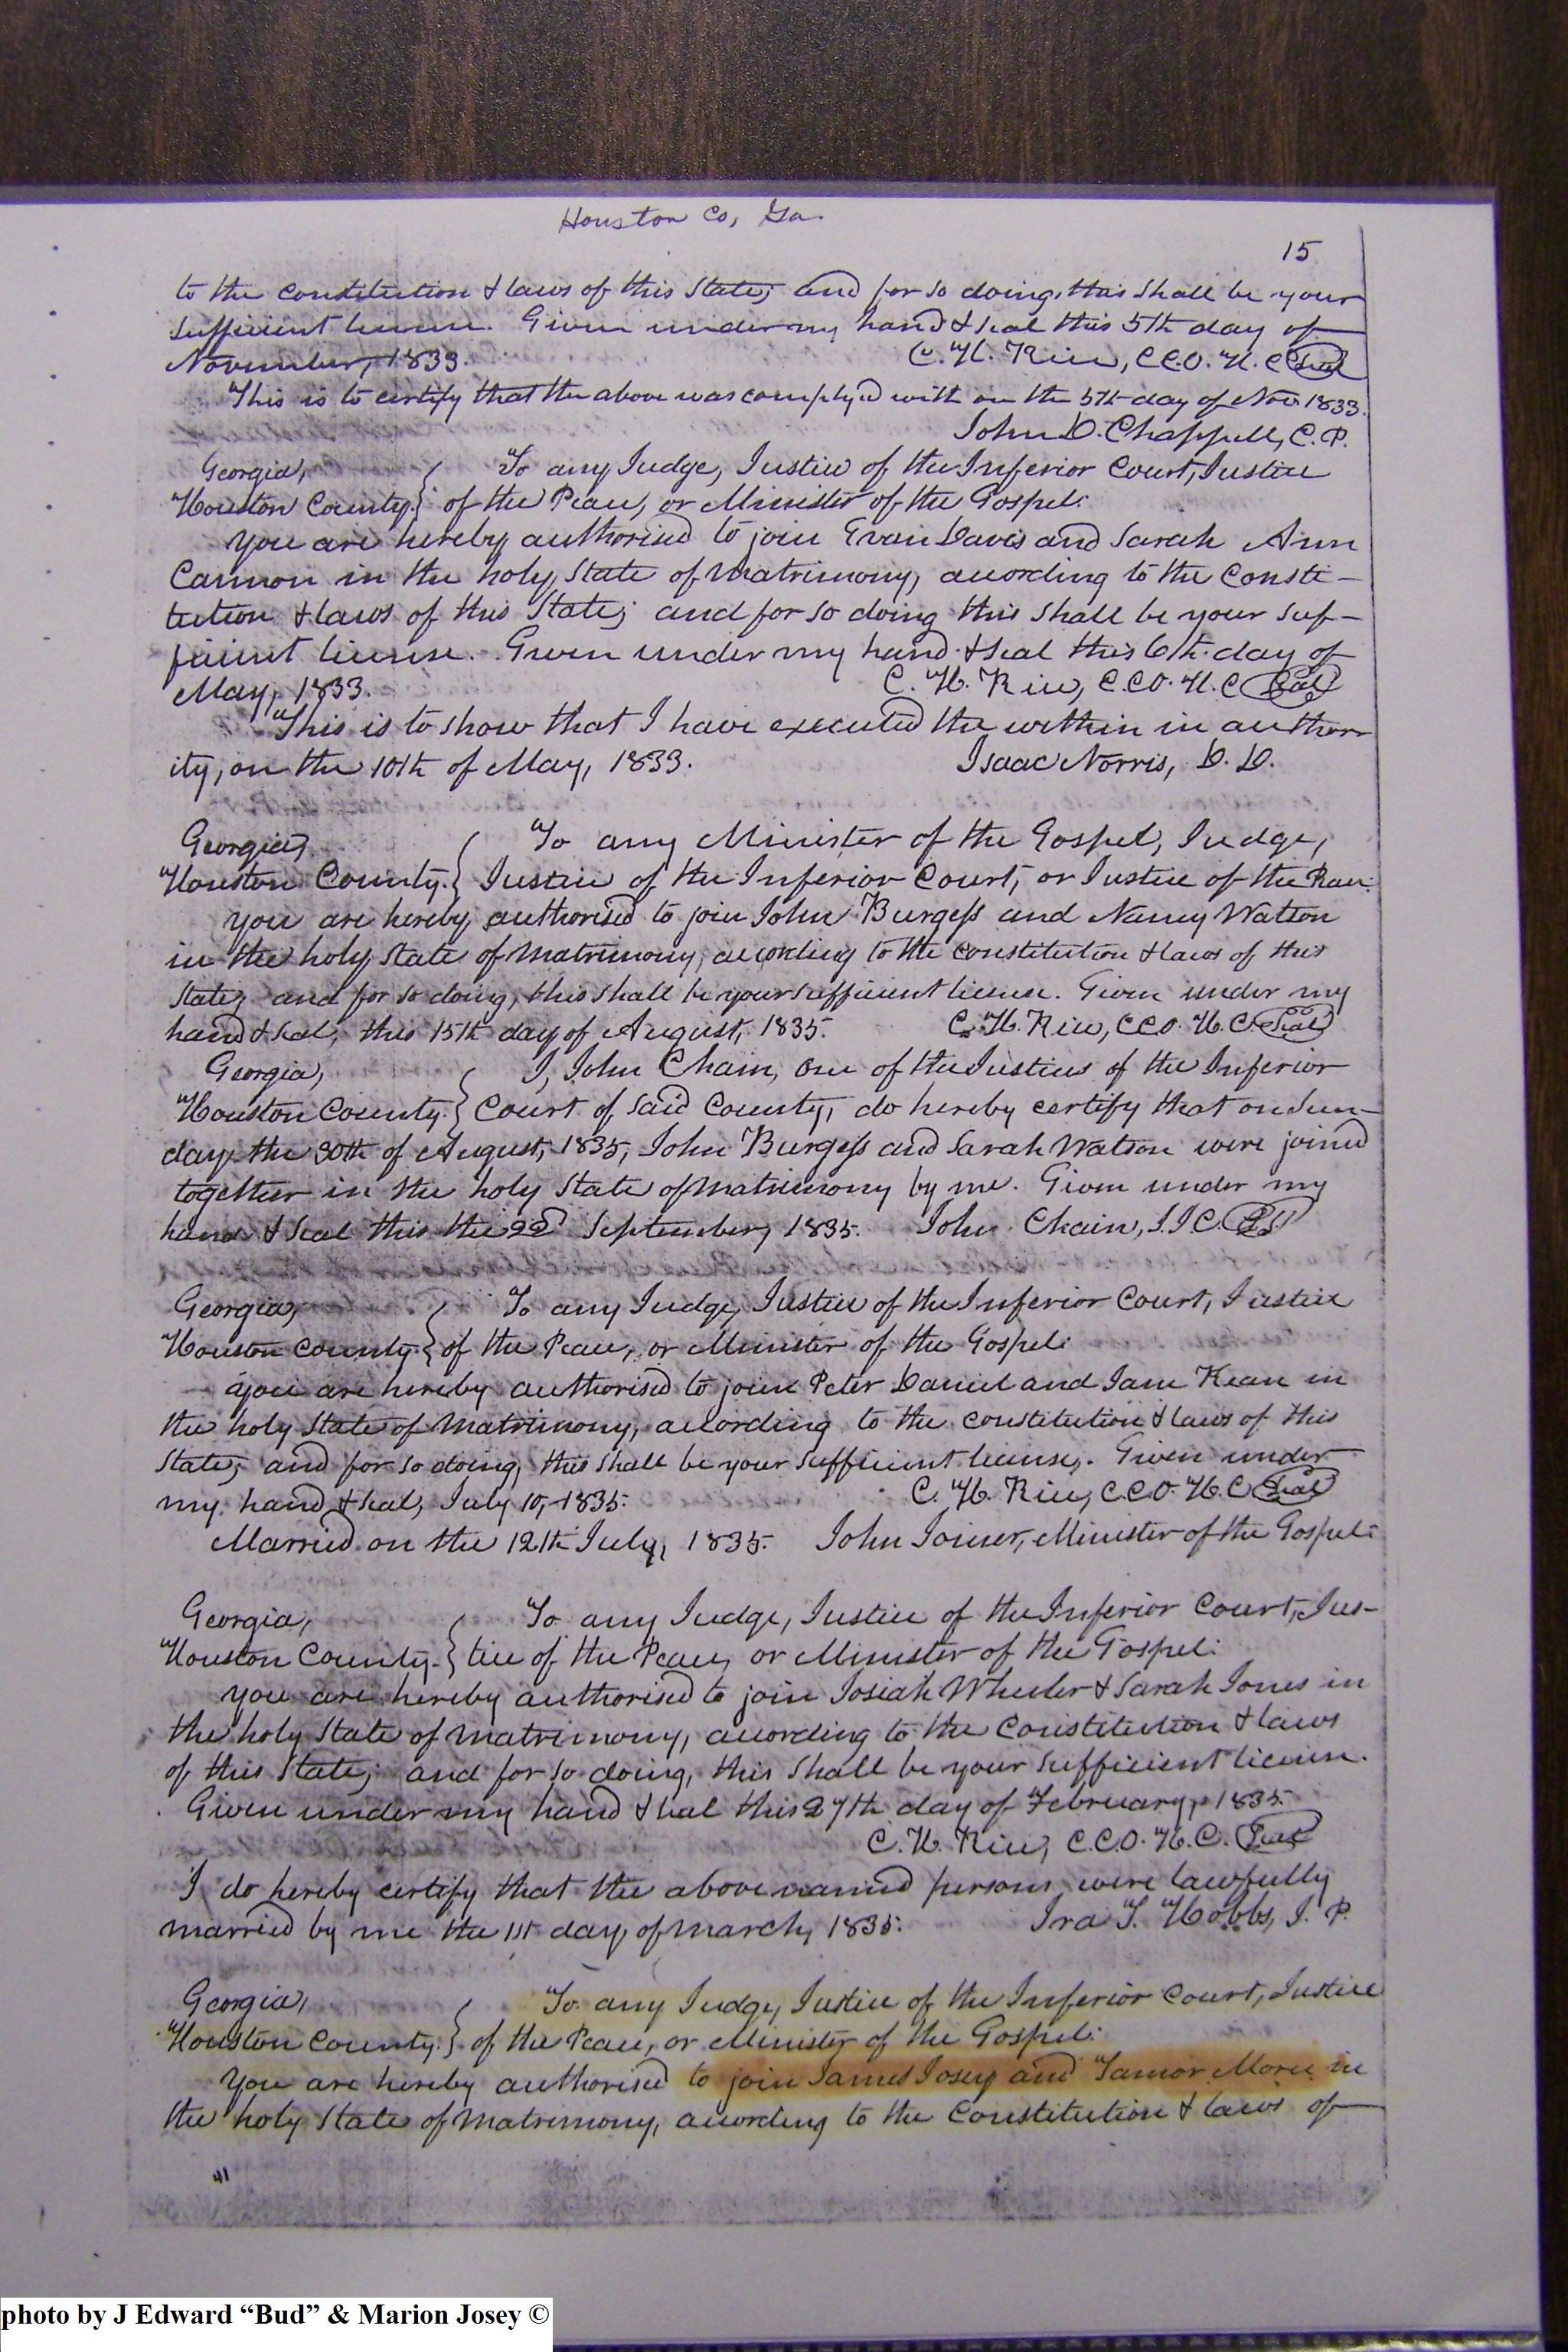 Houston Co, Ga.
15
to the constitution & laws of this State; and for so doing, this shall be your
sufficient license. Given under my hand & seal this 5th day of
November, 1833. C. H. Rice, C.C.O. H. C. Seal
This is to certify that the above was complyed with on the 5th day of Nov. 1833.
John D. Chappell, C. P.
Georgia, } To any Judge, Justice of the Inferior Court, Justice
Houston County. } of the Peace, or Minister of the Gospel:
You are hereby authorised to join Evan Davis and Sarah Ann
Cannon in the holy State of Matrimony, according to the Consti-
tution & laws of this State; and for so doing this shall be your suf-
ficient license. Given under my hand & seal this 6th day of
May, 1833. C. H. Rice, C.C.O. H. C. Seal
This is to show that I have executed the within in author-
ity, on the 10th of May, 1833. Isaac Norris, D. D.
Georgia, } To any Minister of the Gospel, Judge,
Houston County. } Justice of the Inferior Court, or Justice of the Peace:
You are hereby authorised to join John Burgess and Nancy Watson
in the holy State of Matrimony, according to the constitution & laws of this
State; and for so doing, this shall be your sufficient license. Given under my
hand & seal, this 15th day of August, 1835. C. H. Rice, C.C.O. H. C. Seal
Georgia, } I, John Chain, one of the Justices of the Inferior
Houston County. } Court of said County, do hereby certify that on Sun-
day, the 30th of August, 1835, John Burgess and Sarah Watson were joined
together in the holy State of Matrimony by me. Given under my
hand & seal this the 22d September, 1835. John Chain, J. I. C.
Georgia, } To any Judge, Justice of the Inferior Court, Justice
Houston County. } of the Peace, or Minister of the Gospel:
You are hereby authorised to join Peter Daniel and Jane Kean in
the holy State of Matrimony, according to the constitution & laws of this
State; and for so doing, this shall be your sufficient license. Given under
my hand & seal, July 10, 1835. C. H. Rice, C.C.O. H. C. Seal
Married on the 12th July, 1835. John Joiner, Minister of the Gospel:
Georgia, } To any Judge, Justice of the Inferior Court, Jus-
Houston County. } tice of the Peace, or Minister of the Gospel:
You are hereby authorised to join Josiah Wheeler & Sarah Jones in
the holy State of Matrimony, according to the Constitution & laws
of this State; and for so doing, this shall be your sufficient license.
Given under my hand & seal this 27th day of February, 1835.
C. H. Rice, C.C.O. H. C. Seal
I do hereby certify that the above named persons were lawfully
married by me the 1st day of March, 1835. Ira T. Hobbs, J. P.
Georgia, } To any Judge, Justice of the Inferior Court, Justice
Houston County. } of the Peace, or Minister of the Gospel:
You are hereby authorised to join James Josey and Tamor More in
the holy State of Matrimony, according to the Constitution & laws of
photo by J Edward “Bud” & Marion Josey ©